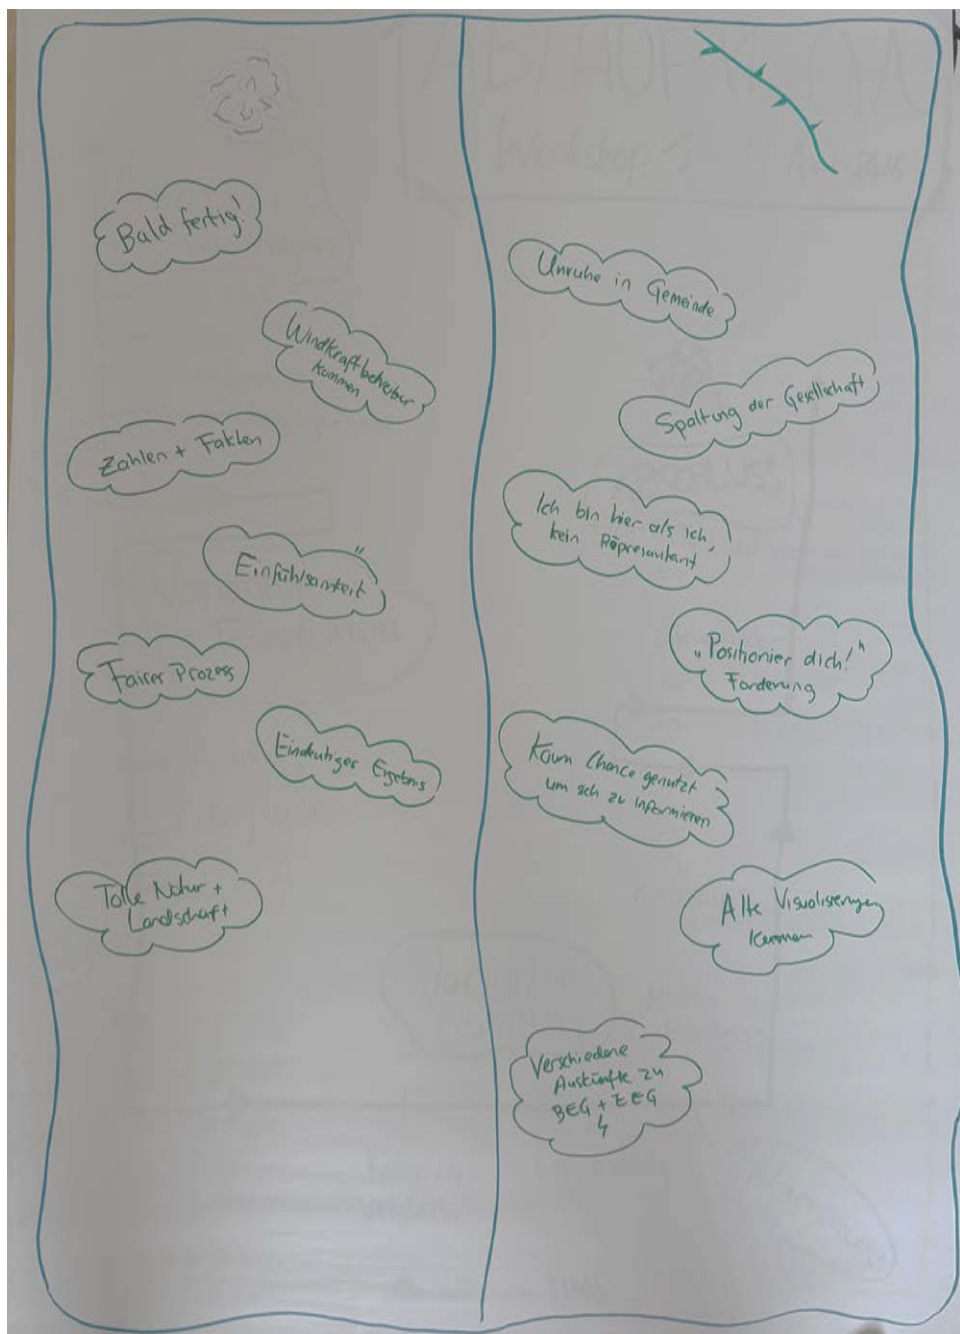 Bald fertig!
Windkraftbetreiber
kommen
Zahlen + Fakten
Einfühlsamkeit
Fairer Prozess
Eindeutiges Ergebnis
Tolle Natur +
Landschaft
Unruhe in Gemeinde
Spaltung der Gesellschaft
Ich bin hier als ich,
kein Repräsentant
„Positionier dich!“
Forderung
Kaum Chance genutzt
um sich zu informieren
Alte Visualisierungen
kommen
Verschiedene
Auskünfte zu
BEG + EEG
Workshop 5